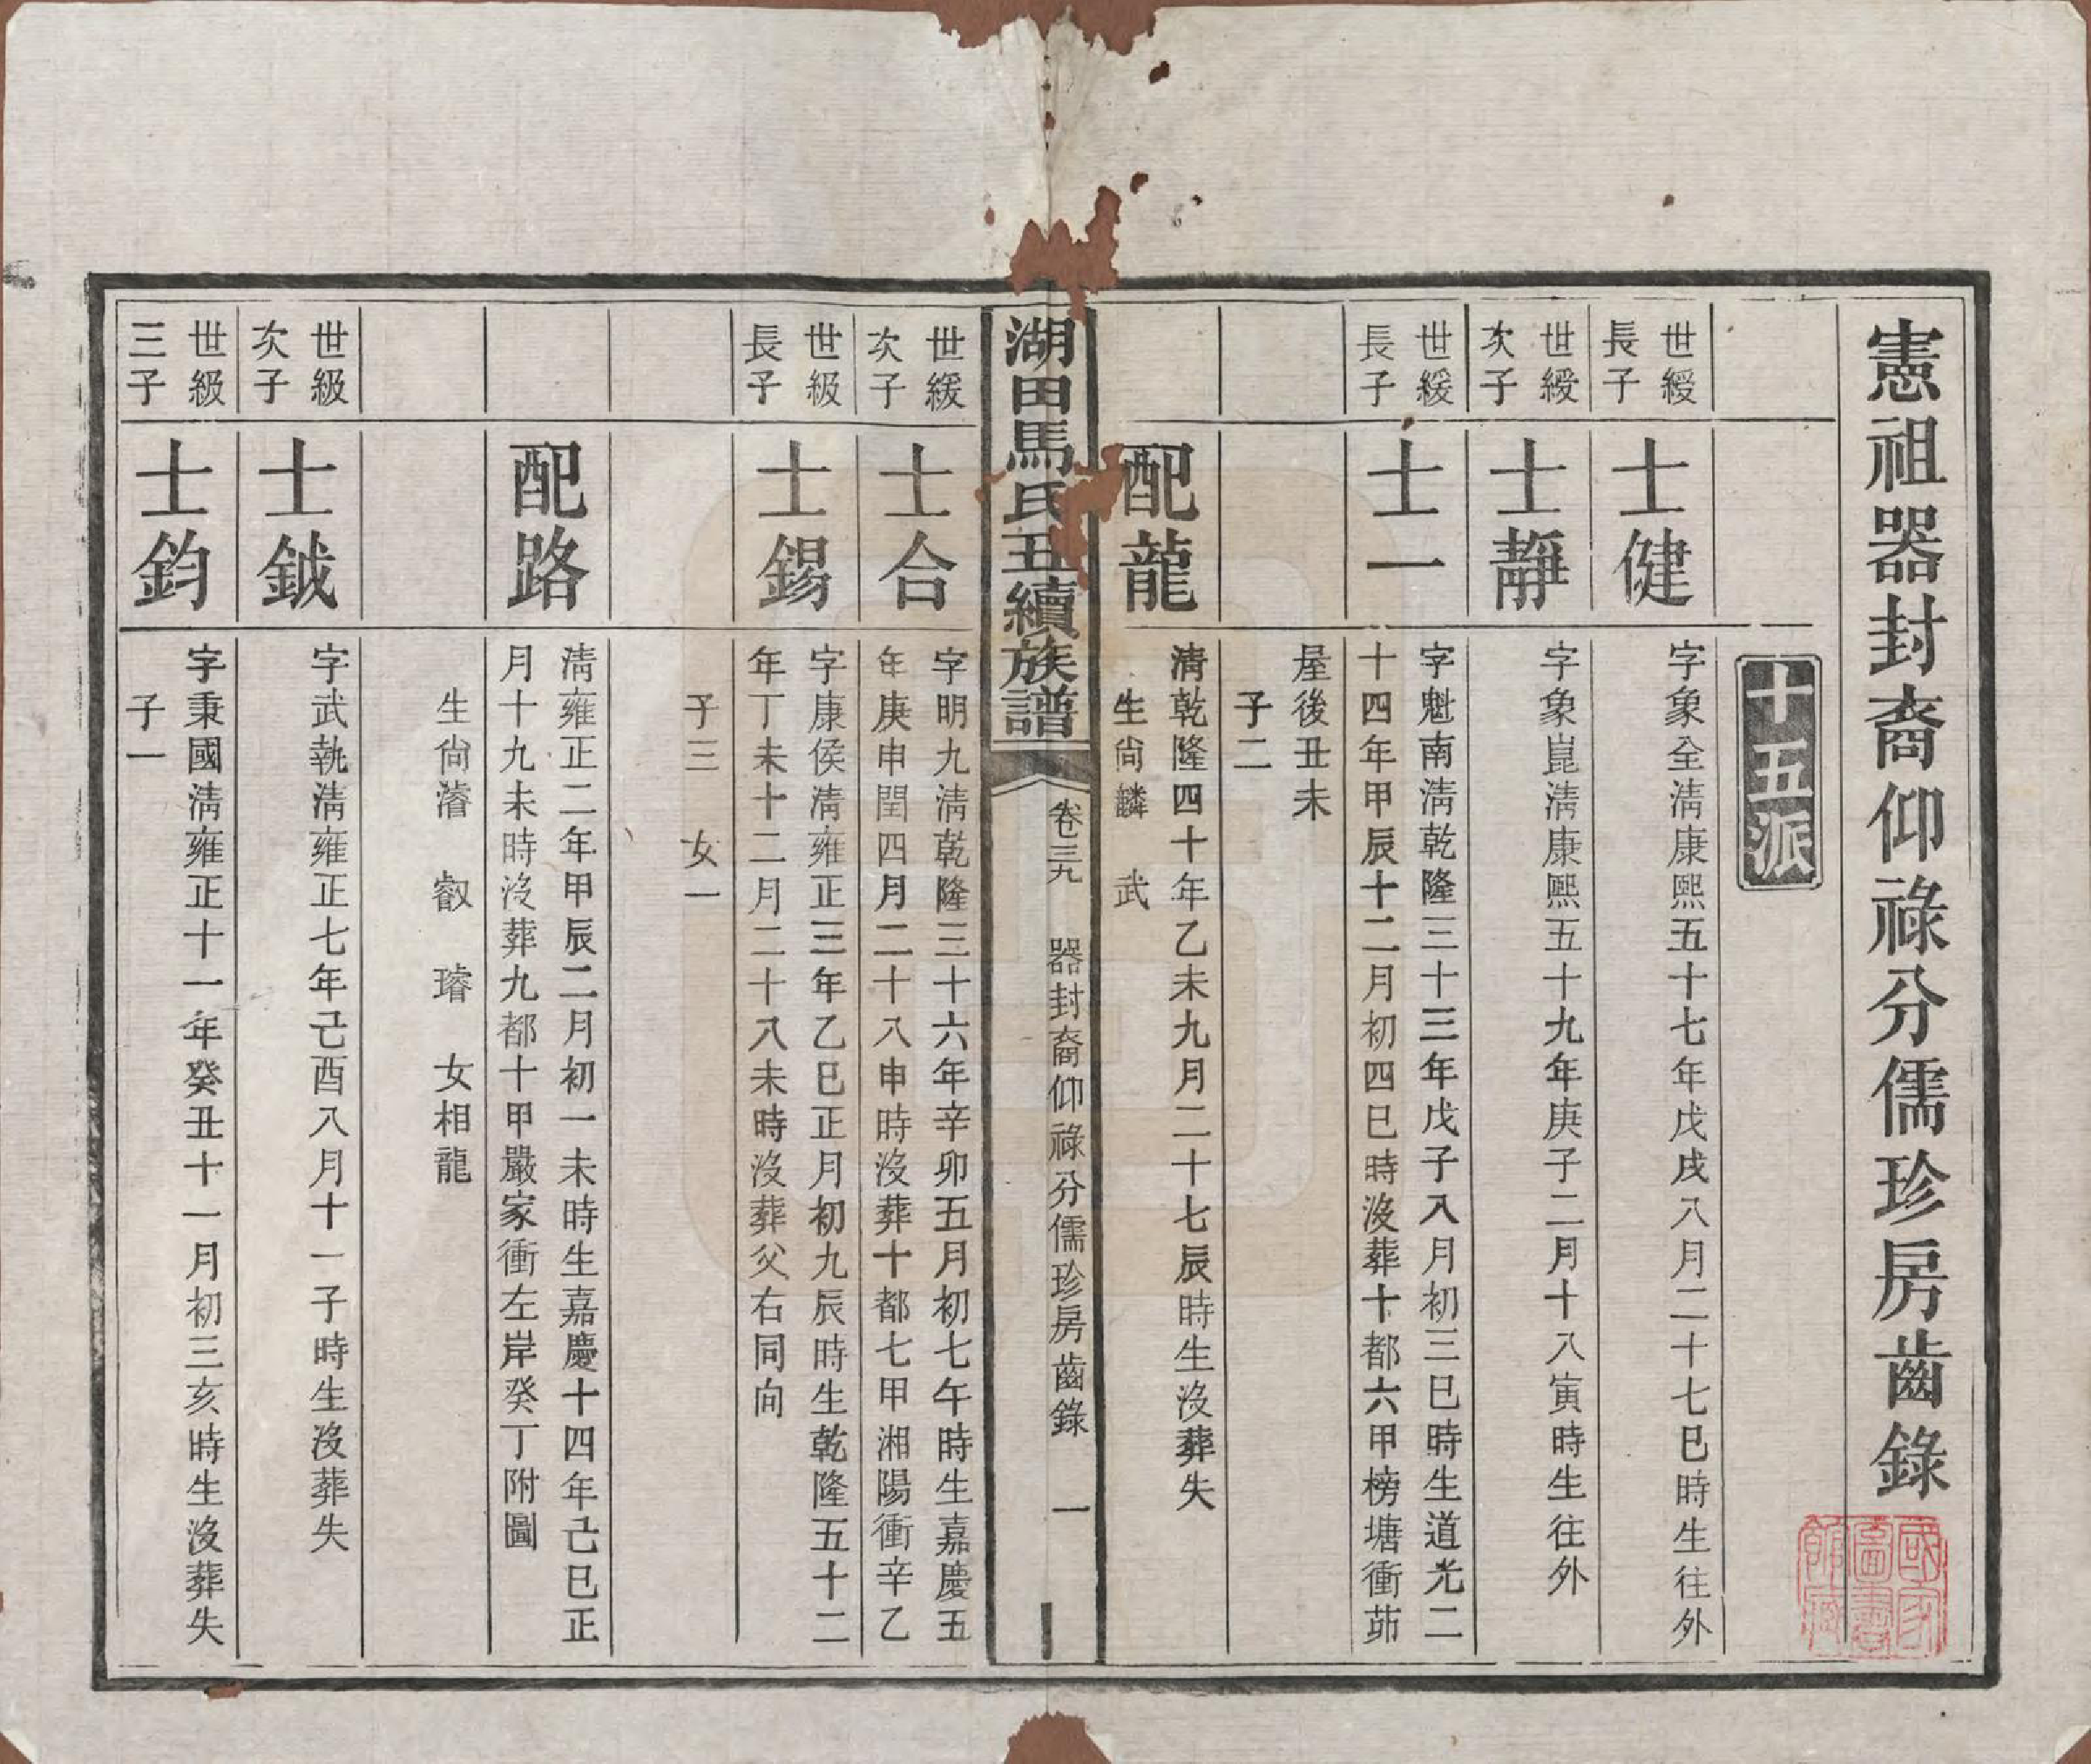 憲祖器封裔仰祿分儒珍房齒錄
國家
圖書
館藏
十五派
世綬
長子
士健
字象全淸康熙五十七年戊戌八月二十七巳時生往外
世綬
次子
士靜
字象崑淸康熙五十九年庚子二月十八寅時生往外
世緩
長子
士一
字魁南淸乾隆三十三年戊子八月初三巳時生道光二
十四年甲辰十二月初四巳時沒葬十都六甲榜塘衝茆
屋後丑未
子二
配龍
淸乾隆四十年乙未九月二十七辰時生沒葬失
生尙麟 武
湖田馬氏五續族譜
卷三九
器封裔仰祿分儒珍房齒錄
一
世緩
次子
士合
字明九淸乾隆三十六年辛卯五月初七午時生嘉慶五
年庚申閏四月二十八申時沒葬十都七甲湘陽衝辛乙
世級
長子
士錫
字康侯淸雍正三年乙巳正月初九辰時生乾隆五十二
年丁未十二月二十八未時沒葬父右同向
子三 女一
配路
淸雍正二年甲辰二月初一未時生嘉慶十四年己巳正
月十九未時沒葬九都十甲嚴家衝左岸癸丁附圖
生尙濬 叡 璿 女相龍
世級
次子
士鉞
字武執淸雍正七年己酉八月十一子時生沒葬失
世級
三子
士鈞
字秉國淸雍正十一年癸丑十一月初三亥時生沒葬失
子一